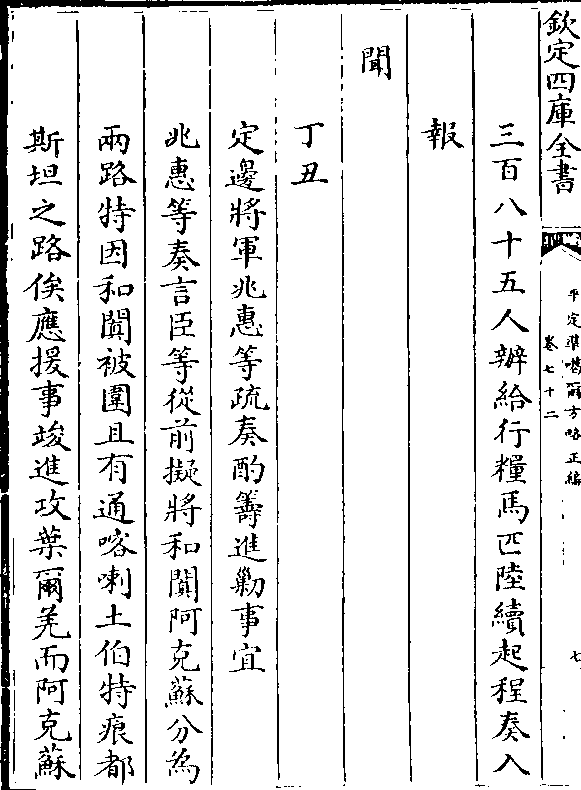 欽定四庫全書
平定準噶爾方略正編
卷七十二
七
三百八十五人辦給行糧馬匹陸續起程奏入
報
聞
丁丑
定邊將軍兆惠等疏奏酌籌進勦事宜
兆惠等奏言臣等從前擬將和闐阿克蘇分為
兩路特因和闐被圍且有通喀喇土伯特痕都
斯坦之路俟應援事竣進攻葉爾羌而阿克蘇